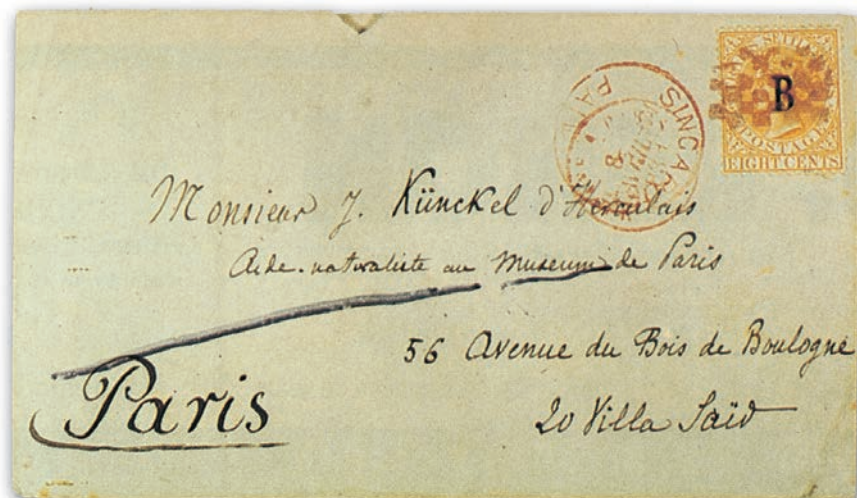 STRAITS SETTLEMENTS
B
POSTAGE
EIGHT CENTS
SINGAPORE
PAID
Monsieur J. Künckel d'Herculais
Aide-naturaliste au Museum de Paris
56 Avenue du Bois de Boulogne
20 Villa Saïd
Paris